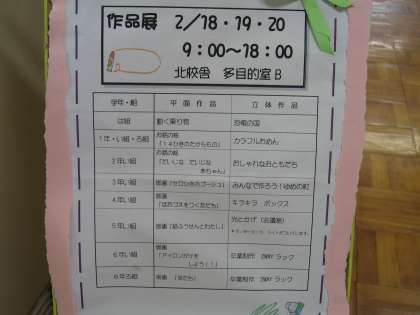 作品展 2/18・19・20
9：00～18：00
北校舎 多目的室B
学年・組 平面作品 立体作品
は組 動く乗り物 恐竜の国
1年・い組・ろ組 お話の絵 カラフルおめん
「14ひきのたからもの」
2年い組 お話の絵 おしゃれなおともだち
「だいじな だいじな
あちゃん」
3年い組 版画「セロひきのゴーシュ」 みんなで作ろう！ゆめの町
4年い組 版画 キラキラ ボックス
「ほおづえをつく友だち」
5年い組 版画「紙ふうせんとわたし」 光とかげ（お城編）
6年い組 版画 卒業制作 2WAYラック
「アイロンがけを
しよう！」
6年ろ組 版画「友だち」 卒業制作 2WAYラック